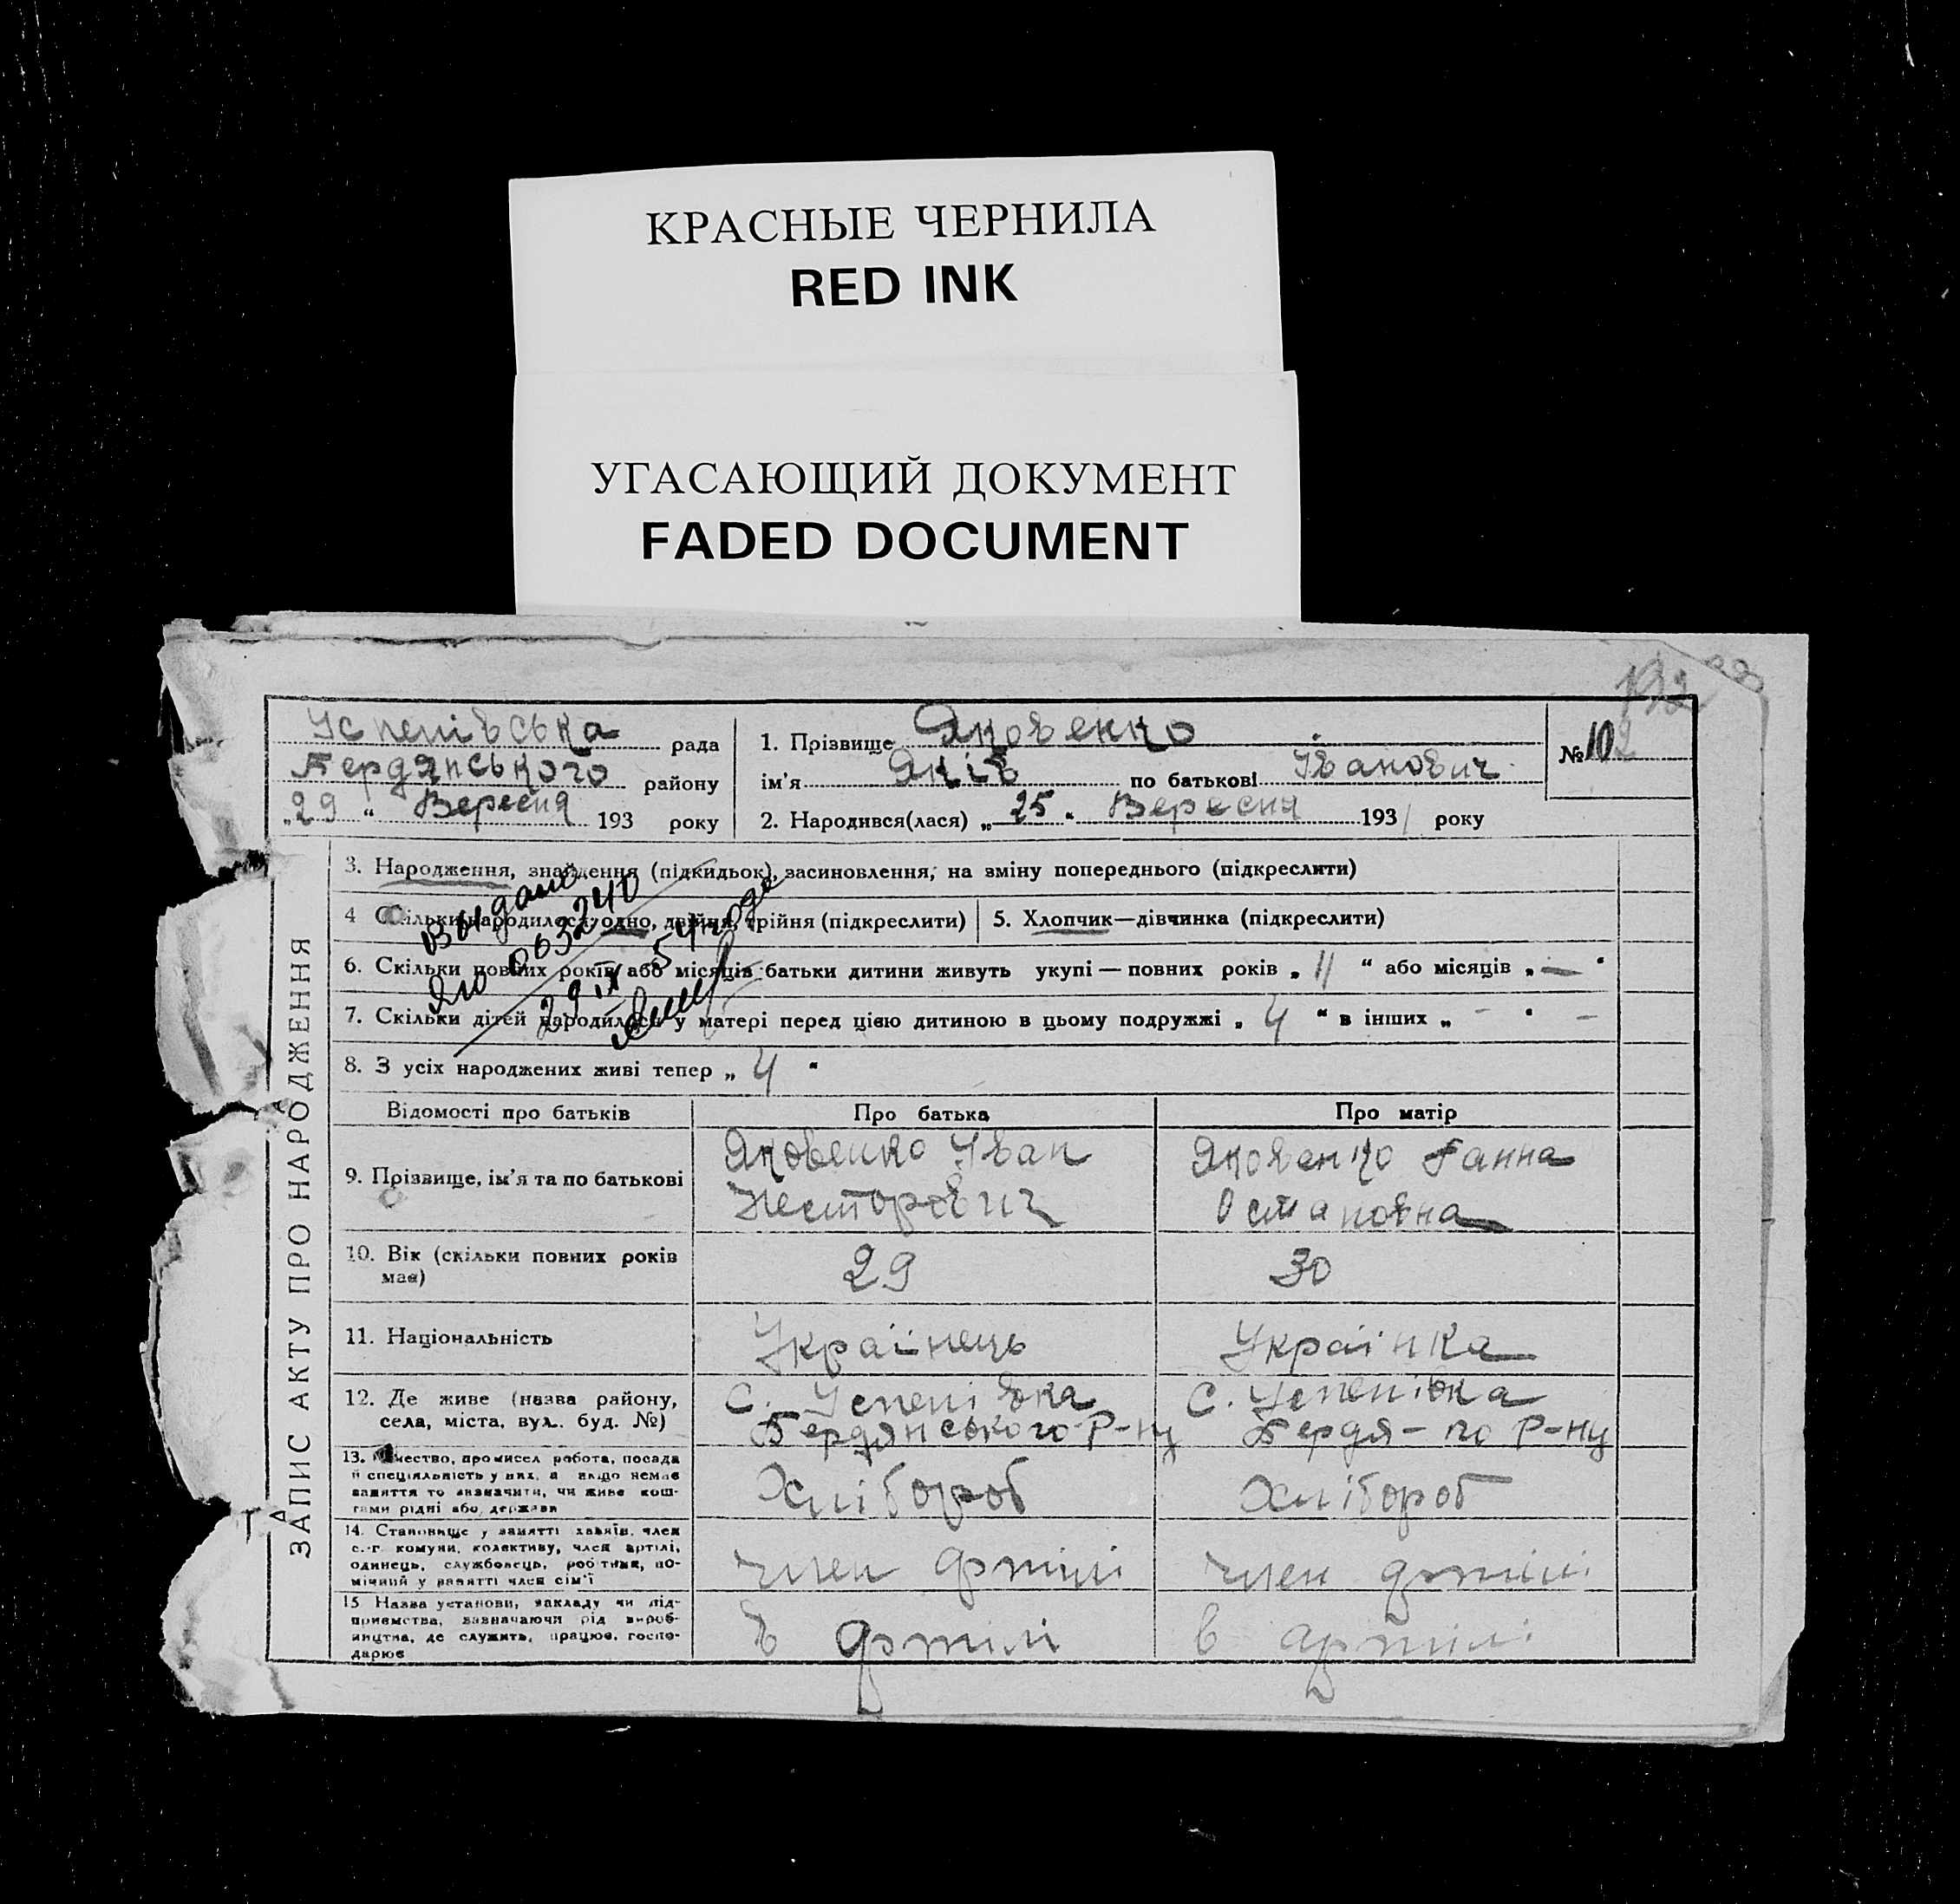 КРАСНЫЕ ЧЕРНИЛА
RED INK
УГАСАЮЩИЙ ДОКУМЕНТ
FADED DOCUMENT
192
Успенівська рада
Бердянського району
„29“ Вересня 193 року
1. Прізвище Яковенко
ім'я Яків по батькові Іванович
2. Народився(лася) „25“ Вересня 1931 року
№ 102
ЗАПИС АКТУ ПРО НАРОДЖЕННЯ
3. Народження, знайдення (підкидьок), засиновлення, на зміну попереднього (підкреслити)
4 Скільки народилося: одно, двійня, трійня (підкреслити)
5. Хлопчик—дівчинка (підкреслити)
6. Скільки повних років або місяців батьки дитини живуть укупі — повних років „11“ або місяців „—“
7. Скільки дітей народилося у матері перед цією дитиною в цьому подружжі „4“ в інших „-“ -
8. З усіх народжених живі тепер „4“
выдано
ЯЮ 063240
29 IX 54 года
Відомості про батьків
Про батька
Про матір
9. Прізвище, ім'я та по батькові
Яковенко Іван
Несторович
Яковенко Ганна
Остаповна
10. Вік (скільки повних років
має)
29
30
11. Національність
Українець
Українка
12. Де живе (назва району,
села, міста, вул. буд. №)
С. Успенівка
Бердянського Р-ну
С. Успенівка
Бердя-го Р-ну
13. робота, посада
й спеціяльність у них, а якщо немає
заняття то визначити, чи живе кош-
тами рідні або держави
Хлібороб
Хлібороб
14. Становище у занятті хазяїн, член
с.-г. комуни, колективу, член артілі,
одинець, службовець, робітник, по-
мічний у занятті член сім'ї
член артілі
член артілі
15 Назва установи, закладу чи під-
приємства, зазначаючи рід вироб-
ництва, де служить, працює, госпо-
дарює
в артілі
в артілі